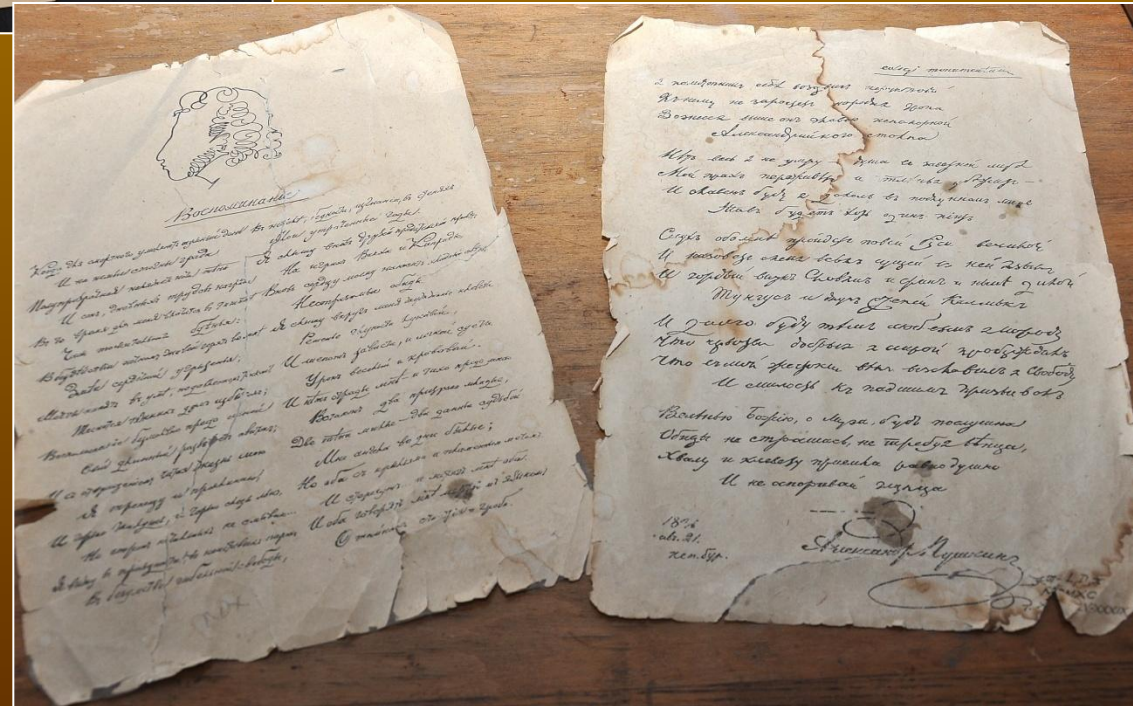 Воспоминанiе
Когда для смертнаго умолкнетъ шумный день
И на нѣмыя стогны града
Полупрозрачная наляжетъ ночи тѣнь
И сонъ, дневныхъ трудовъ награда
Въ то время для меня влачатся въ тишинѣ
Часы томительнаго бдѣнья:
Въ бездѣйствiи ночномъ живѣй горятъ во мнѣ
Змѣи сердечной угрызенья;
Мечты кипятъ; въ умѣ, подавленномъ тоской
Тѣснится тяжкихъ думъ избытокъ;
Воспоминанiе безмолвно предо мной
Свой длинный развиваетъ свитокъ;
И съ отвращенiемъ читая жизнь мою
Я трепещу и проклинаю
И горько жалуюсь, и горько слезы лью,
Но строкъ печальныхъ не смываю.
Я вижу въ праздности, въ неистовыхъ пирахъ
Въ безумствѣ гибельной свободы,
Въ неволѣ, бѣдности, изгнанiи, въ степяхъ
Мои утраченные годы.
Я слышу вновь друзей предательскiй привѣтъ
На играхъ Вакха и Киприды
Вновь сердцу моему наноситъ хладный свѣтъ
Неотразимыя обиды
Я слышу вкругъ меня жужжанье клеветы
Рѣшенья глупости лукавой
И шопотъ зависти, и легкой суеты
Укоръ веселый и кровавый.
И нѣтъ отрады мнѣ и тихо предо мной
Встаютъ два призрака младые,
Двѣ тѣни милыя – два данные судьбой
Мнѣ ангела во дни былые;
Но оба съ крыльями и съ пламеннымъ мечомъ
И стерегутъ и мстятъ мнѣ оба.
И оба говорятъ мнѣ мертвымъ языкомъ
О тайнахъ счастiя и гроба.
exegi monumentum
Я памятникъ себѣ воздвигъ нерукотворный
Къ нему не заростетъ народная тропа
Вознесся выше онъ главою непокорной
Александрiйскаго столпа
Нѣтъ весь я не умру – душа въ завѣтной лирѣ
Мой прахъ переживетъ и тлѣнья убѣжитъ –
И славенъ буду я доколь въ подлунномъ мiрѣ
Живъ будетъ хоть одинъ пiитъ
Слухъ обо мнѣ пройдетъ по всей Руси великой
И назоветъ меня всякъ сущiй въ ней языкъ
И гордый внукъ Славянъ и финнъ и нынѣ дикой
Тунгусъ и другъ степей Калмыкъ
И долго буду тѣмъ любезенъ я народу
Что чувства добрыя я лирой пробуждалъ
Что въ мой жестокiй вѣкъ возславилъ я Свободу
И милость къ падшимъ призывалъ
Велѣнью Божiю, о Муза, будь послушна
Обиды не страшась, не требуя вѣнца,
Хвалу и клевету прiемли равнодушно
И не оспоривай глупца
1836
авг. 21.
кам.остр.
Александръ Пушкинъ